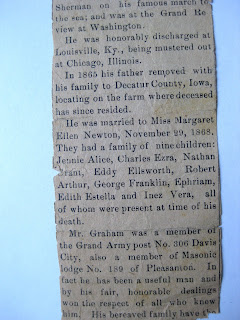 Sherman on his famous march to
the sea; and was at the Grand Re-
view at Washington.
He was honorably discharged at
Louisville, Ky., being mustered out
at Chicago, Illinois.
In 1865 his father removed with
his family to Decatur County, Iowa,
locating on the farm where deceased
has since resided.
He was married to Miss Margaret
Ellen Newton, November 29, 1868.
They had a family of nine children:
Jennie Alice, Charles Ezra, Nathan
Grant, Eddy Ellsworth, Robert
Arthur, George Franklin, Ephriam,
Edith Estella and Inez Vera, all
of whom were present at time of his
death.
Mr. Graham was a member of
the Grand Army post No. 306 Davis
City, also a member of Masonic
lodge No. 189 of Pleasanton. In
fact he has been a useful man and
by his fair, honorable dealings
won the respect of all who knew
him. His bereaved family have the